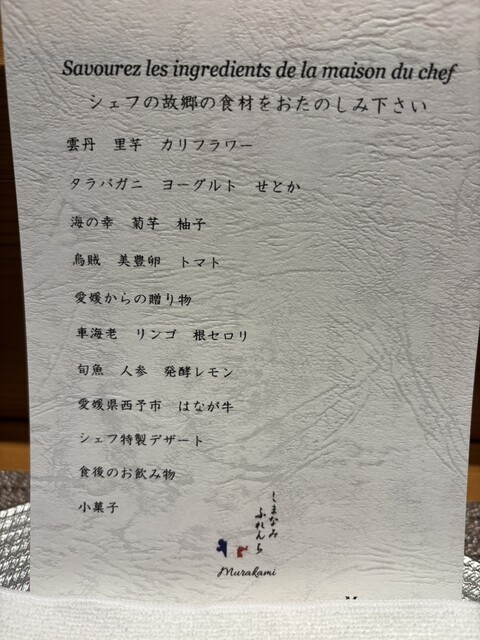 Savourez les ingredients de la maison du chef
シェフの故郷の食材をおたのしみ下さい
雲丹　里芋　カリフラワー
タラバガニ　ヨーグルト　せとか
海の幸　菊芋　柚子
烏賊　美豊卵　トマト
愛媛からの贈り物
車海老　リンゴ　根セロリ
旬魚　人参　発酵レモン
愛媛県西予市　はなが牛
シェフ特製デザート
食後のお飲み物
小菓子
しまなみ
ふれんち
Murakami